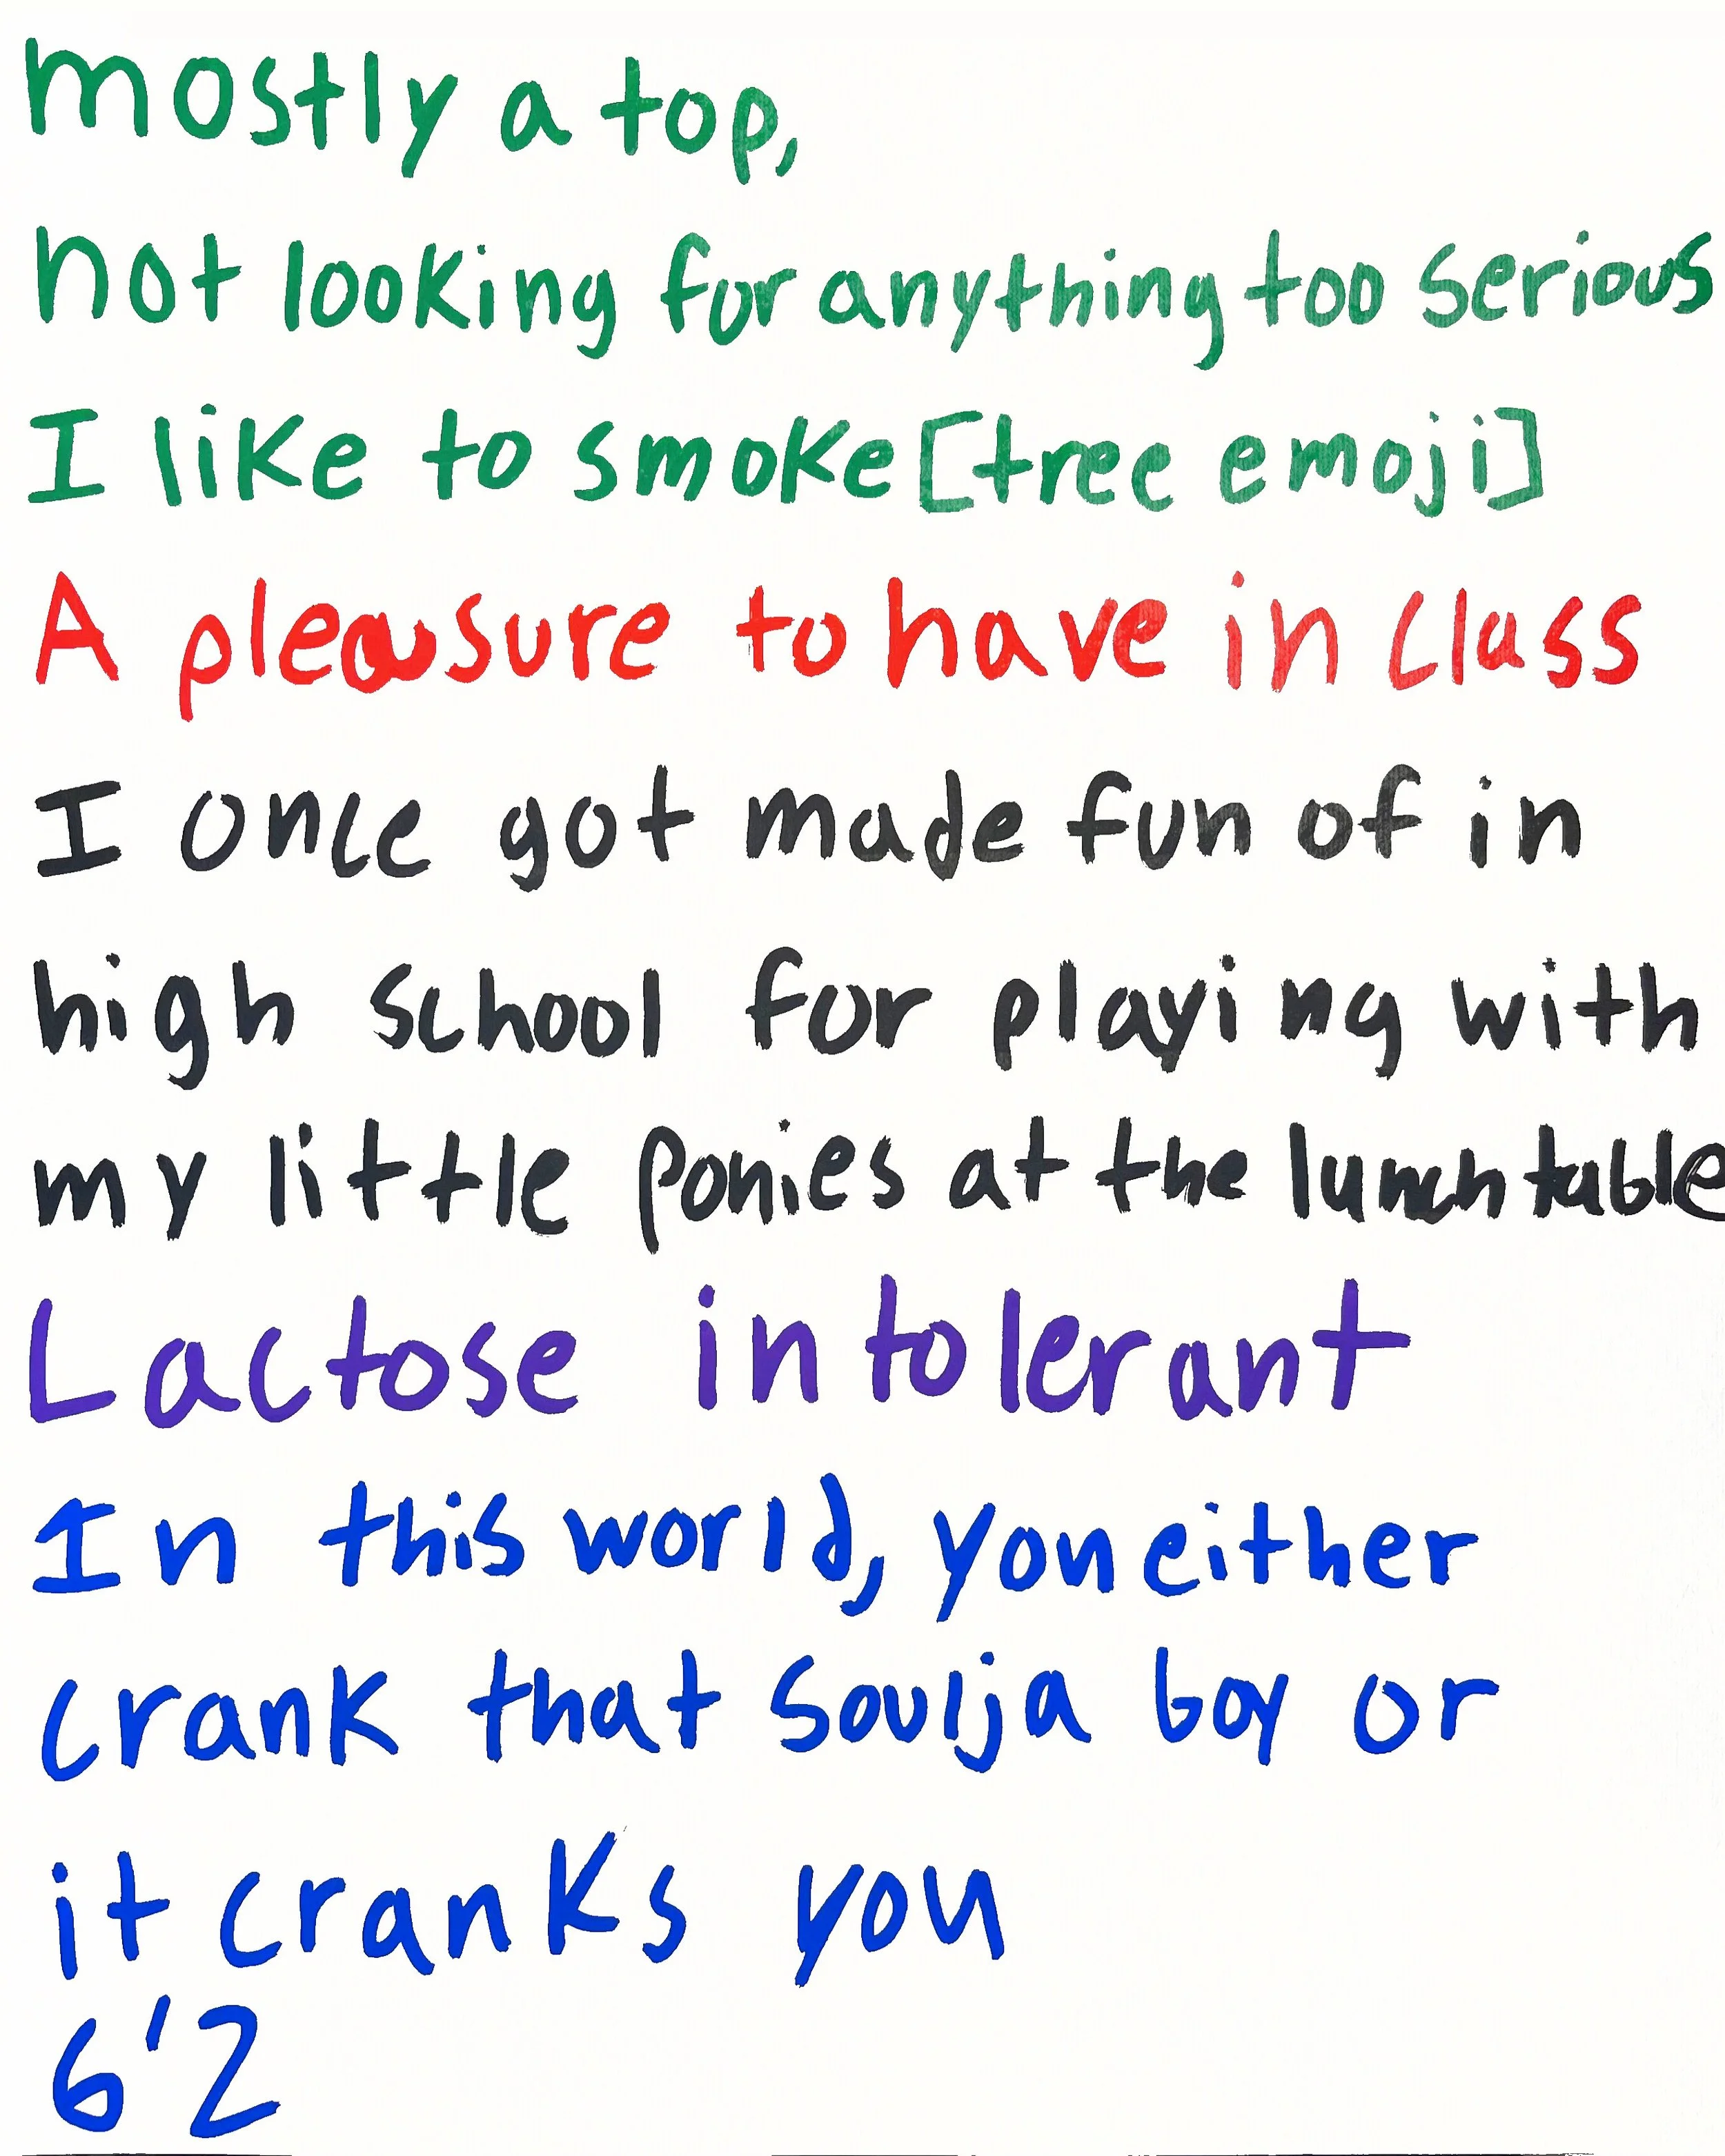 mostly a top,
not looking for anything too serious
I like to smoke [tree emoji]
A pleasure to have in class
I once got made fun of in
high school for playing with
my little ponies at the lunch table
Lactose intolerant
In this world, you either
crank that soulja boy or
it cranks you
6'2